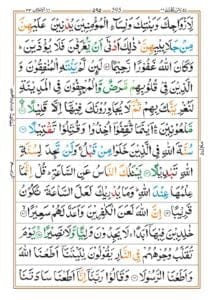 لِّاَزْوَاجِكَ وَبَنٰتِكَ وَنِسَآءِ الْمُؤْمِنِيْنَ يُدْنِيْنَ عَلَيْهِنَّ
مِنْ جَلَابِيْبِهِنَّ ؕ ذٰلِكَ اَدْنٰٓى اَنْ يُّعْرَفْنَ فَلَا يُؤْذَيْنَ ؕ
وَكَانَ اللّٰهُ غَفُوْرًا رَّحِيْمًا ۝ لَئِنْ لَّمْ يَنْتَهِ الْمُنٰفِقُوْنَ وَ
الَّذِيْنَ فِيْ قُلُوْبِهِمْ مَّرَضٌ وَّالْمُرْجِفُوْنَ فِي الْمَدِيْنَةِ
لَنُغْرِيَنَّكَ بِهِمْ ثُمَّ لَا يُجَاوِرُوْنَكَ فِيْهَآ اِلَّا قَلِيْلًا ۝
مَّلْعُوْنِيْنَ ۛۚ اَيْنَمَا ثُقِفُوْٓا اُخِذُوْا وَقُتِّلُوْا تَقْتِيْلًا ۝
سُنَّةَ اللّٰهِ فِي الَّذِيْنَ خَلَوْا مِنْ قَبْلُ ۚ وَلَنْ تَجِدَ لِسُنَّةِ
اللّٰهِ تَبْدِيْلًا ۝ يَسْـَٔلُكَ النَّاسُ عَنِ السَّاعَةِ ؕ قُلْ اِنَّمَا
عِلْمُهَا عِنْدَ اللّٰهِ ؕ وَمَا يُدْرِيْكَ لَعَلَّ السَّاعَةَ تَكُوْنُ
قَرِيْبًا ۝ اِنَّ اللّٰهَ لَعَنَ الْكٰفِرِيْنَ وَاَعَدَّ لَهُمْ سَعِيْرًا ۝
خٰلِدِيْنَ فِيْهَآ اَبَدًا ۚ لَا يَجِدُوْنَ وَلِيًّا وَّلَا نَصِيْرًا ۝ يَوْمَ
تُقَلَّبُ وُجُوْهُهُمْ فِي النَّارِ يَقُوْلُوْنَ يٰلَيْتَنَآ اَطَعْنَا اللّٰهَ
وَاَطَعْنَا الرَّسُوْلَا ۝ وَقَالُوْا رَبَّنَآ اِنَّآ اَطَعْنَا سَادَتَنَا